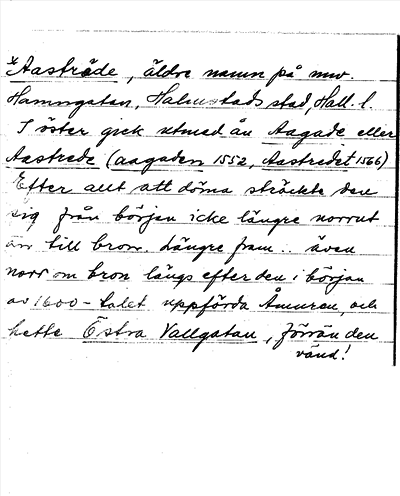 *Aastræde, äldre namn på nuv.
Hamngatan, Halmstads stad, Hall. l.
I öster gick utmed ån Aagade eller
Aastrede (aagaden 1552, Aastredet 1566)
Efter allt att döma sträckte den
sig från början icke längre norrut
än till bron. Längre fram .. även
norr om bron längs efter den i början
av 1600-talet uppförda Åmuren, och
hette Östra Vallgatan, förrän den
vänd!